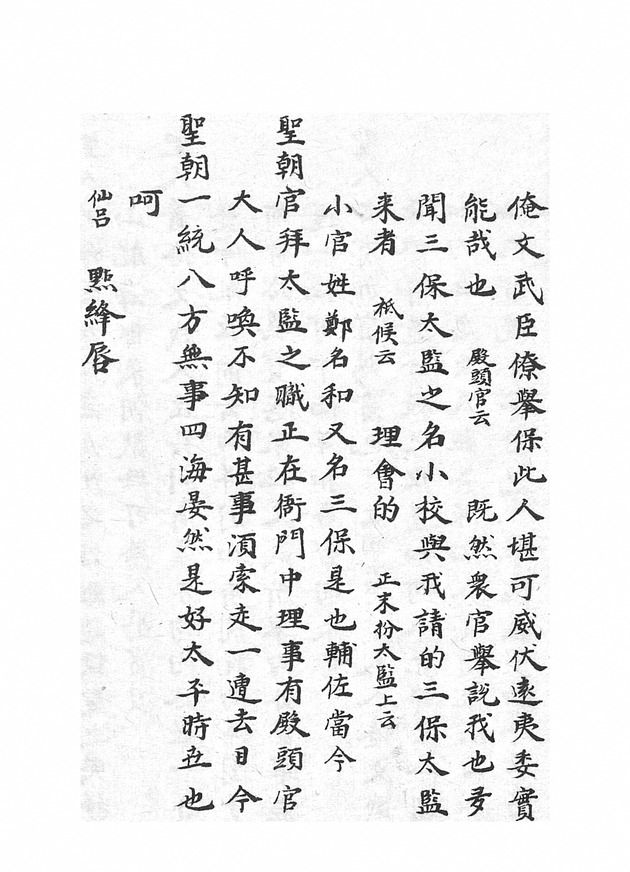 俺文武臣僚舉保此人堪可威伏遠夷委實
能哉也 殿頭官云 既然衆官舉説我也多
聞三保太監之名小校與我請的三保太監
来者 祗候云 理會的 正末扮太監上云
小官姓鄭名和又名三保是也輔佐當今
聖朝官拜太監之職正在衙門中理事有殿頭官
大人呼喚不知有甚事湏索走一遭去日今
聖朝一統八方無事四海晏然是好太平時丗也
呵
仙吕 點絳唇